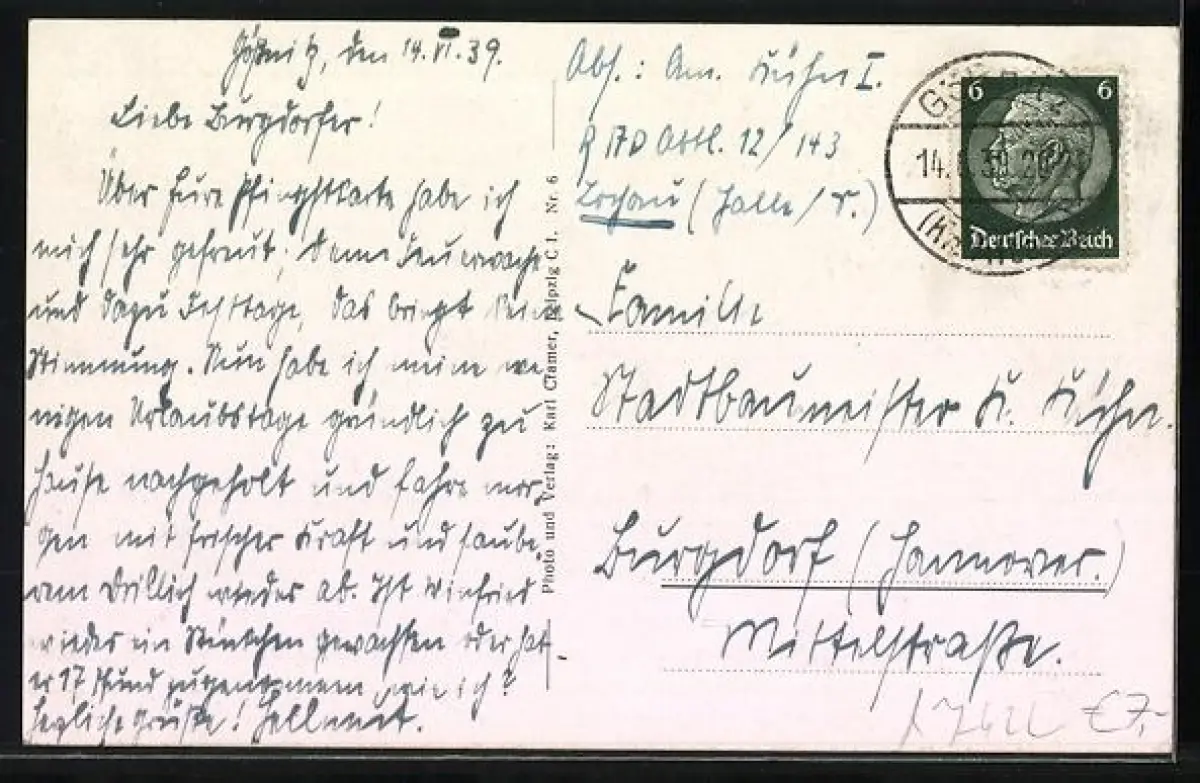 Gößnitz, den 14.VI.39.
Liebe Burgdorfer!
Über Eure Pfingstkarte habe ich
mich sehr gefreut; denn Feuerwache
und dazu Festtage, das bringt keine
Stimmung. Nun habe ich meine we-
nigen Urlaubstage gründlich zu
Hause nachgeholt und fahre mor-
gen mit frischer Kraft und saube-
rem Drillich wieder ab. Ist Winfried
wieder ein Stückchen gewachsen oder hat
er 17 Pfund zugenommen, wie ich?
Herzliche Grüße! Hellmut.
Photo und Verlag: Karl Cramer, Leipzig C 1. Nr. 6
Abs.: Am. Kühn I.
R A D Abtl. 12/143
Lochau (Halle/S.)
6 6
Deutsches Reich
14.6.39.20
Familie
Stadtbaumeister K. Kühn.
Burgdorf (Hannover.)
Mittelstraße.
€7,-